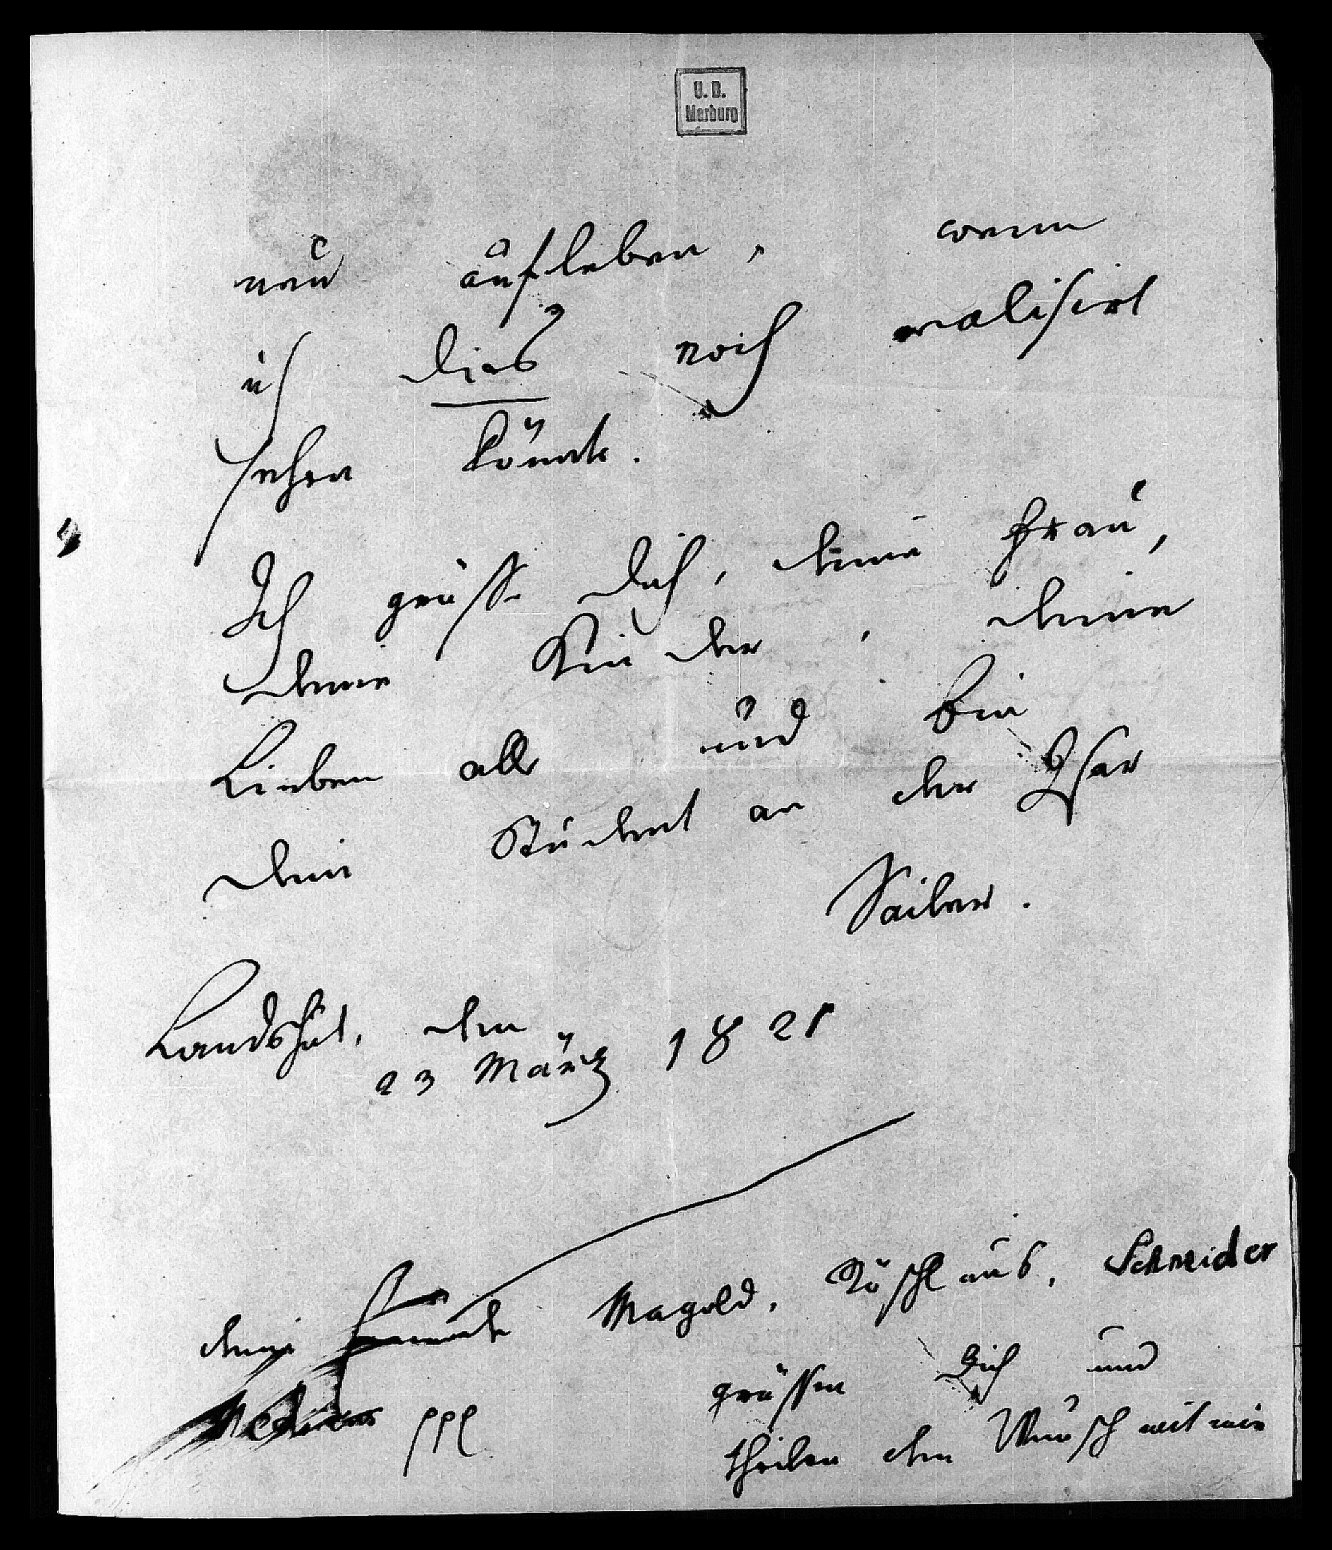 U. B.
Marburg
neu aufleben, wenn
ich dies noch realisirt
sehen könnte.
Ich grüsse Dich, deine Frau,
deine Kinder, deine
Lieben alle und bin
dein Student an der Isar
Sailer.
Landshut, den
23 März 1821
deine Freunde Magold, Röschlaub, Schneider
grüssen Dich und
theilen den Wunsch mit mir